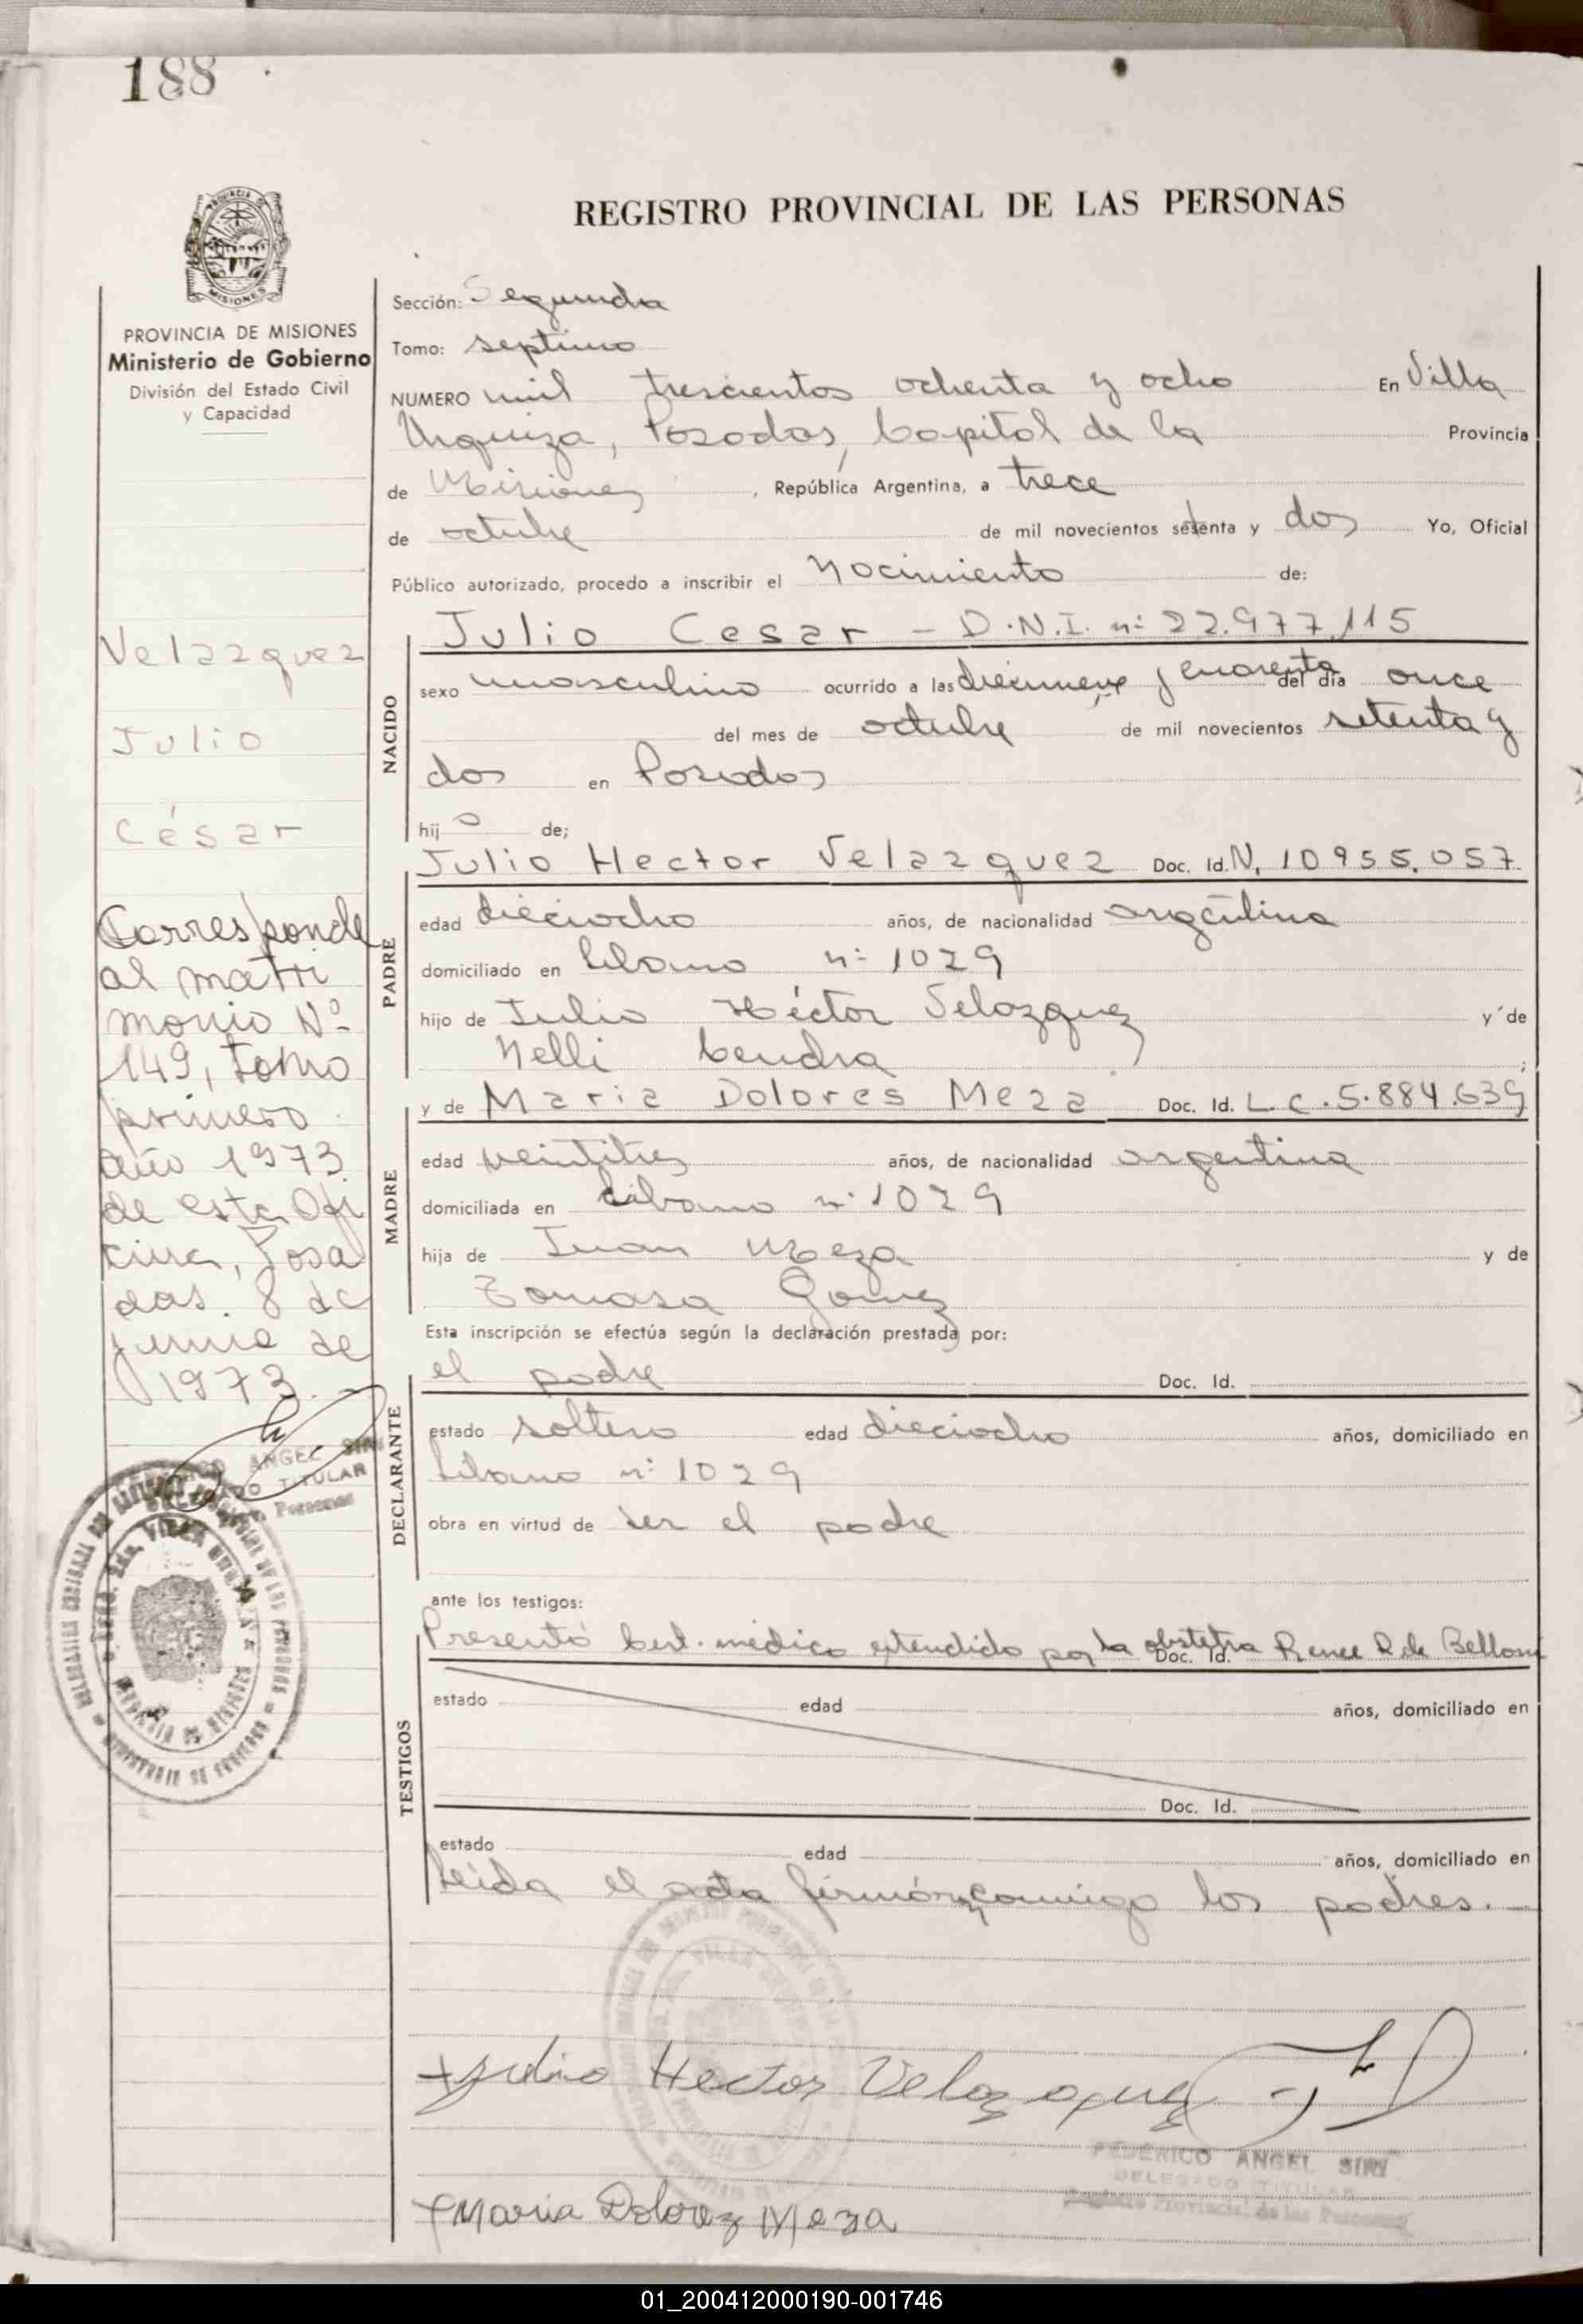 188
REGISTRO PROVINCIAL DE LAS PERSONAS
MISIONES
PROVINCIA DE MISIONES
Ministerio de Gobierno
División del Estado Civil
y Capacidad
Sección: Segunda
Tomo: septimo
NUMERO mil trescientos ochenta y ocho En Villa
Urquiza, Posadas, Capital de la Provincia
de Misiones, República Argentina, a trece
de octubre de mil novecientos setenta y dos Yo, Oficial
Público autorizado, procedo a inscribir el Nacimiento de:
Velazquez
Julio
César
Corresponde
al matri
monio Nº
149, tomo
primero
año 1973
de esta Ofi
cina, Posa
das. 8 de
junio de
1973.
ANGEL SIRI
TITULAR
Personas
NACIDO
Julio Cesar - D.N.I. nº 22.977.115
sexo masculino ocurrido a las diecinueve y cuarenta del día once
del mes de octubre de mil novecientos setenta y
dos en Posadas
hijo de;
PADRE
Julio Hector Velazquez Doc. Id. N. 10955.057
edad dieciocho años, de nacionalidad argentina
domiciliado en Libano nº 1029
hijo de Julio Héctor Velazquez y de
Nelli ;
MADRE
y de Maria Dolores Meza Doc. Id. L.C. 5.884.639
edad veintitres años, de nacionalidad argentina
domiciliada en Libano nº 1029
hija de Juan Meza y de
Tomasa Gomez
Esta inscripción se efectúa según la declaración prestada por:
DECLARANTE
el padre Doc. Id.
estado soltero edad dieciocho años, domiciliado en
Libano nº 1029
obra en virtud de ser el padre
ante los testigos:
TESTIGOS
Presentó Cert. médico extendido por la obstetra Renee R de Belloni Doc. Id.
estado edad años, domiciliado en
Doc. Id.
estado edad años, domiciliado en
Leida el acta firmán conmigo los padres.
Julio Hector Velazquez
FEDERICO ANGEL SIRI
DELEGADO TITULAR
Registro Provincial de las Personas
Maria Dolorez Meza
01_200412000190-001746